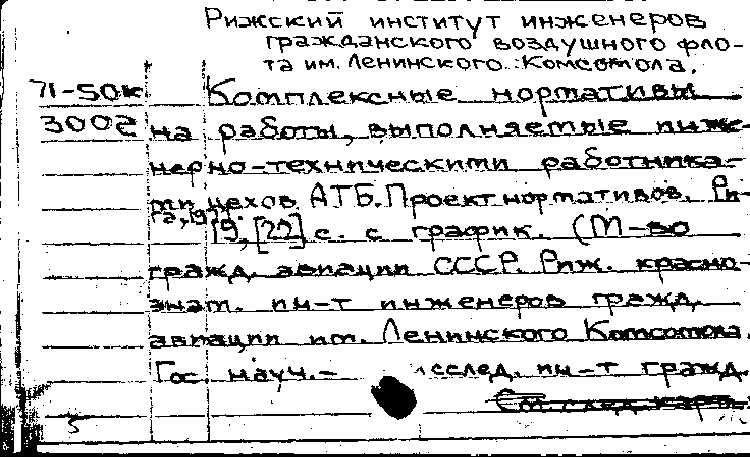 Рижский институт инженеров
гражданского воздушного фло-
та им. Ленинского Комсомола.
71-50к Комплексные нормативы
3002 на работы, выполняемые инже-
нерно-техническими работника-
ми цехов АТБ. Проект нормативов. Ри-
га, 1971.
19, [22] с. с график. (М-во
гражд. авиации СССР. Риж. красно-
знам. ин-т инженеров гражд.
авиации им. Ленинского Комсомола.
Гос. науч.- исслед. ин-т гражд.
См. след. карт.
5